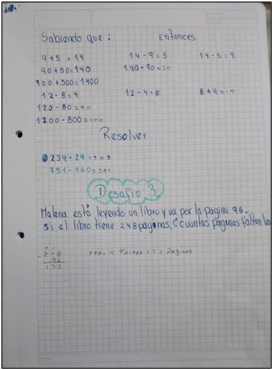 Sabiendo que: Entonces
9+5=14 14-9=5 14-5=9
90+50=140 140-90=
900+500=1400
12-8=4 12-4=8 8+4=
120-80=40
1200-800=
Resolver
234-29=
751-160=
Desafio 3
Malena está leyendo un libro y va por la pagina 96.
Si el libro tiene 248 paginas, ¿cuantas paginas faltan
Faltan 152 Paginas